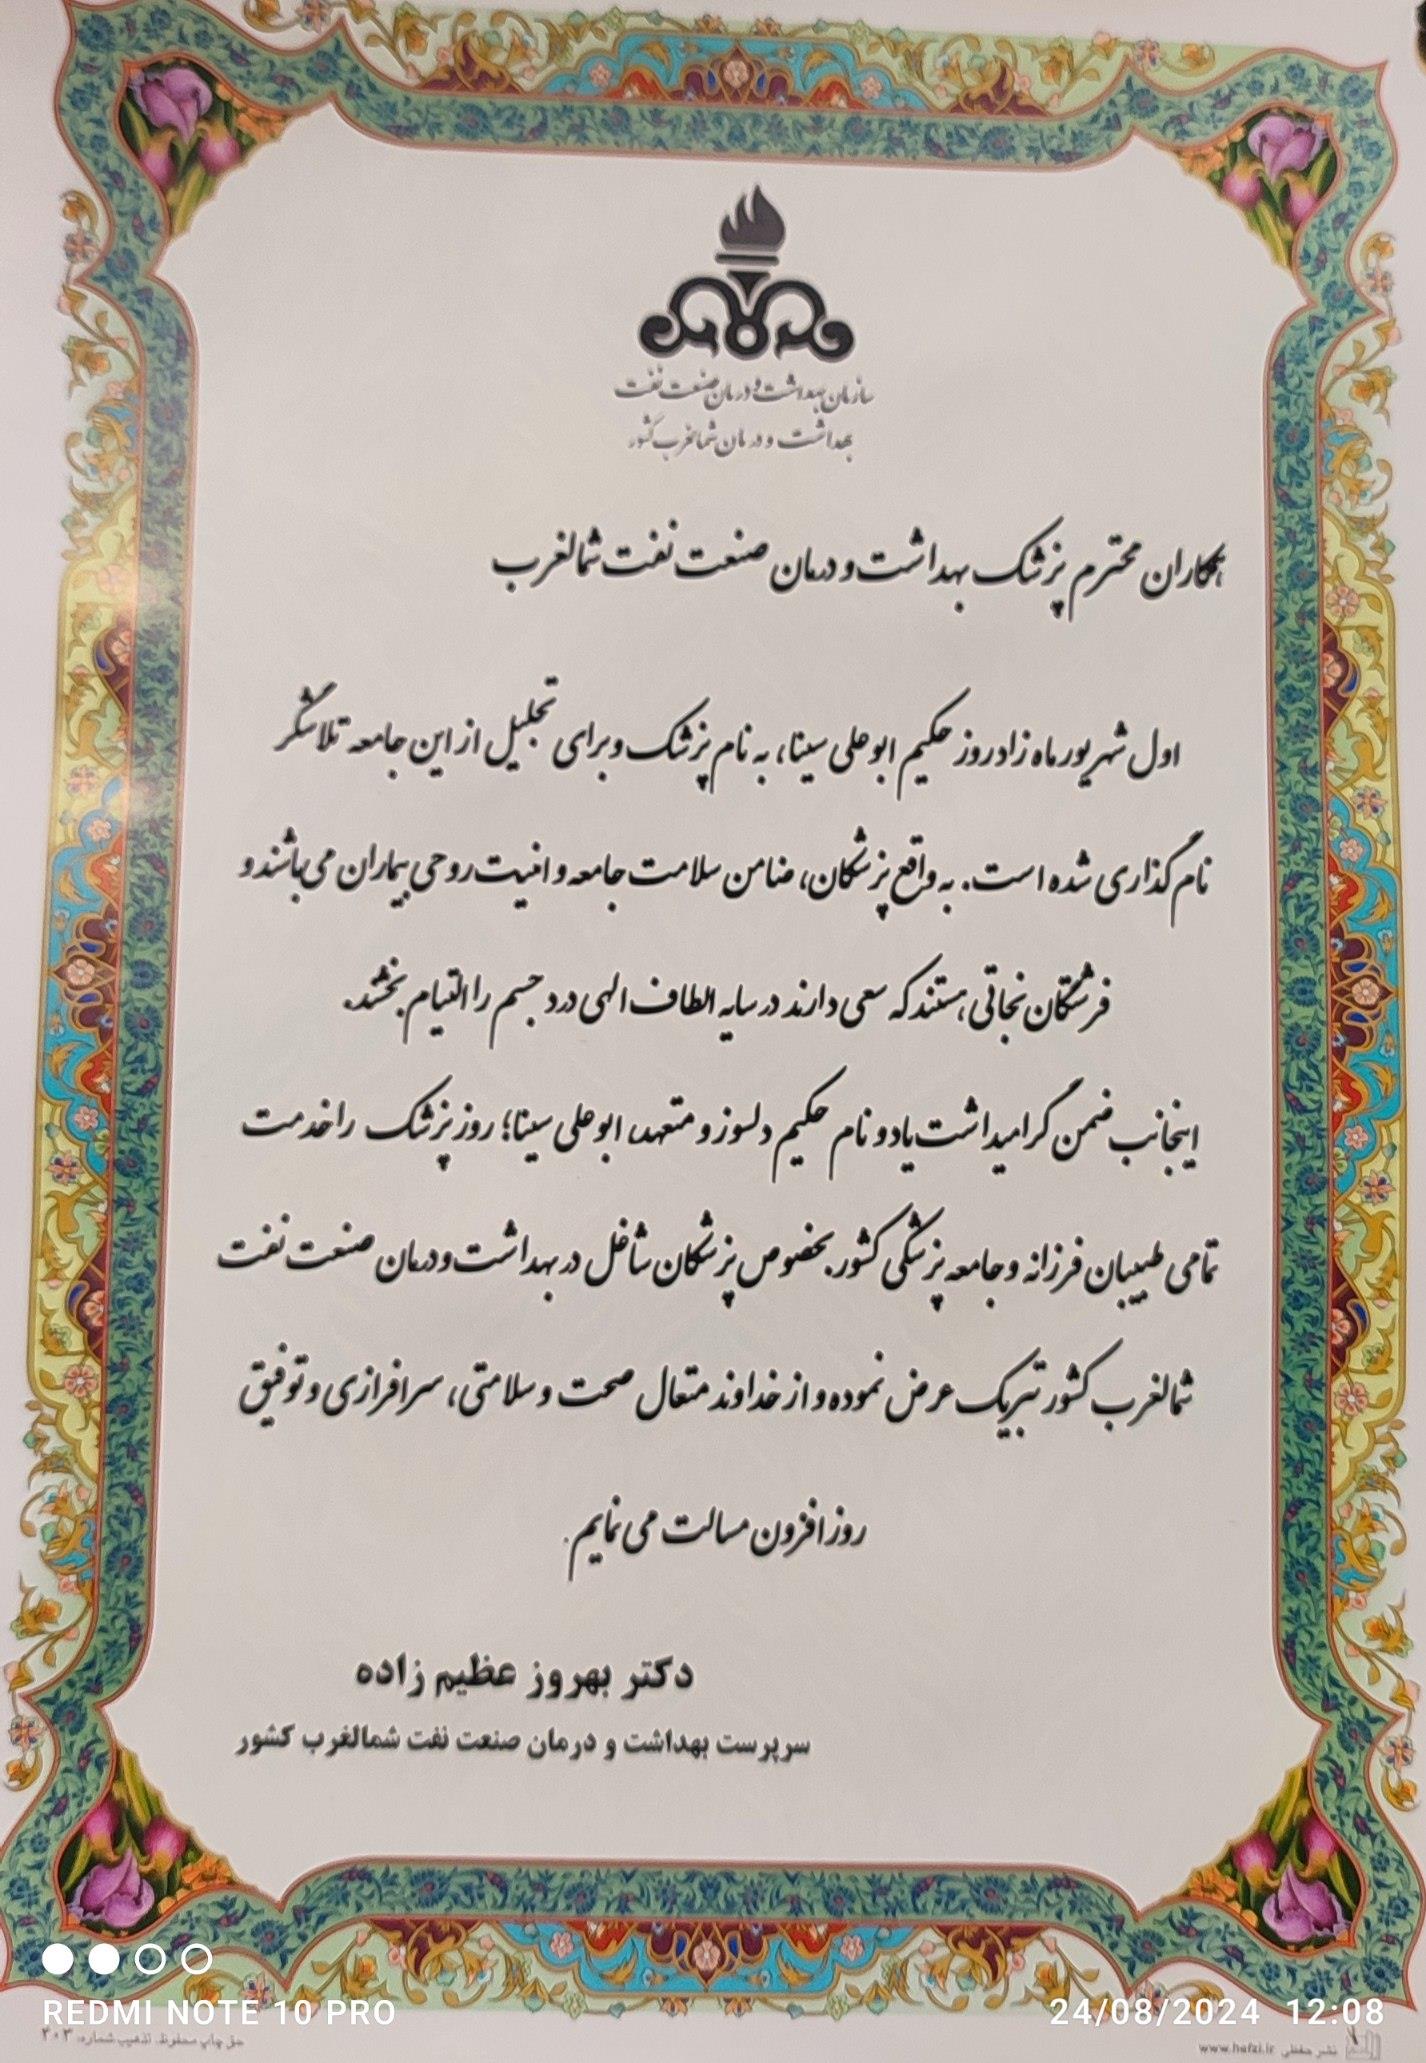 سازمان بهداشت و درمان صنعت نفت
بهداشت و درمان شمالغرب کشور
همکاران محترم پزشک بهداشت و درمان صنعت نفت شمالغرب
اول شهریور ماه زادروز حکیم ابوعلی سینا، به نام پزشک و برای تجلیل از این جامعه تلاشگر
نام گذاری شده است. به واقع پزشکان، ضامن سلامت جامعه و امنیت روحی بیماران می باشند و
فرشتگان نجاتی هستند که سعی دارند در سایه الطاف الهی درد جسم را التیام بخشند.
اینجانب ضمن گرامیداشت یاد و نام حکیم دلسوز و متعهد، ابوعلی سینا؛ روز پزشک را خدمت
تمامی طبیبان فرزانه و جامعه پزشکی کشور. بخصوص پزشکان شاغل در بهداشت و درمان صنعت نفت
شمالغرب کشور تبریک عرض نموده و از خداوند متعال صحت و سلامتی، سرافرازی و توفیق
روز افزون مسالت می نمایم.
دکتر بهروز عظیم زاده
سرپرست بهداشت و درمان صنعت نفت شمالغرب کشور
REDMI NOTE 10 PRO
24/08/2024 12:08
حق چاپ محفوظ. تذهیب شماره: ۲۰۳
نشر حفظی www.hafzi.ir